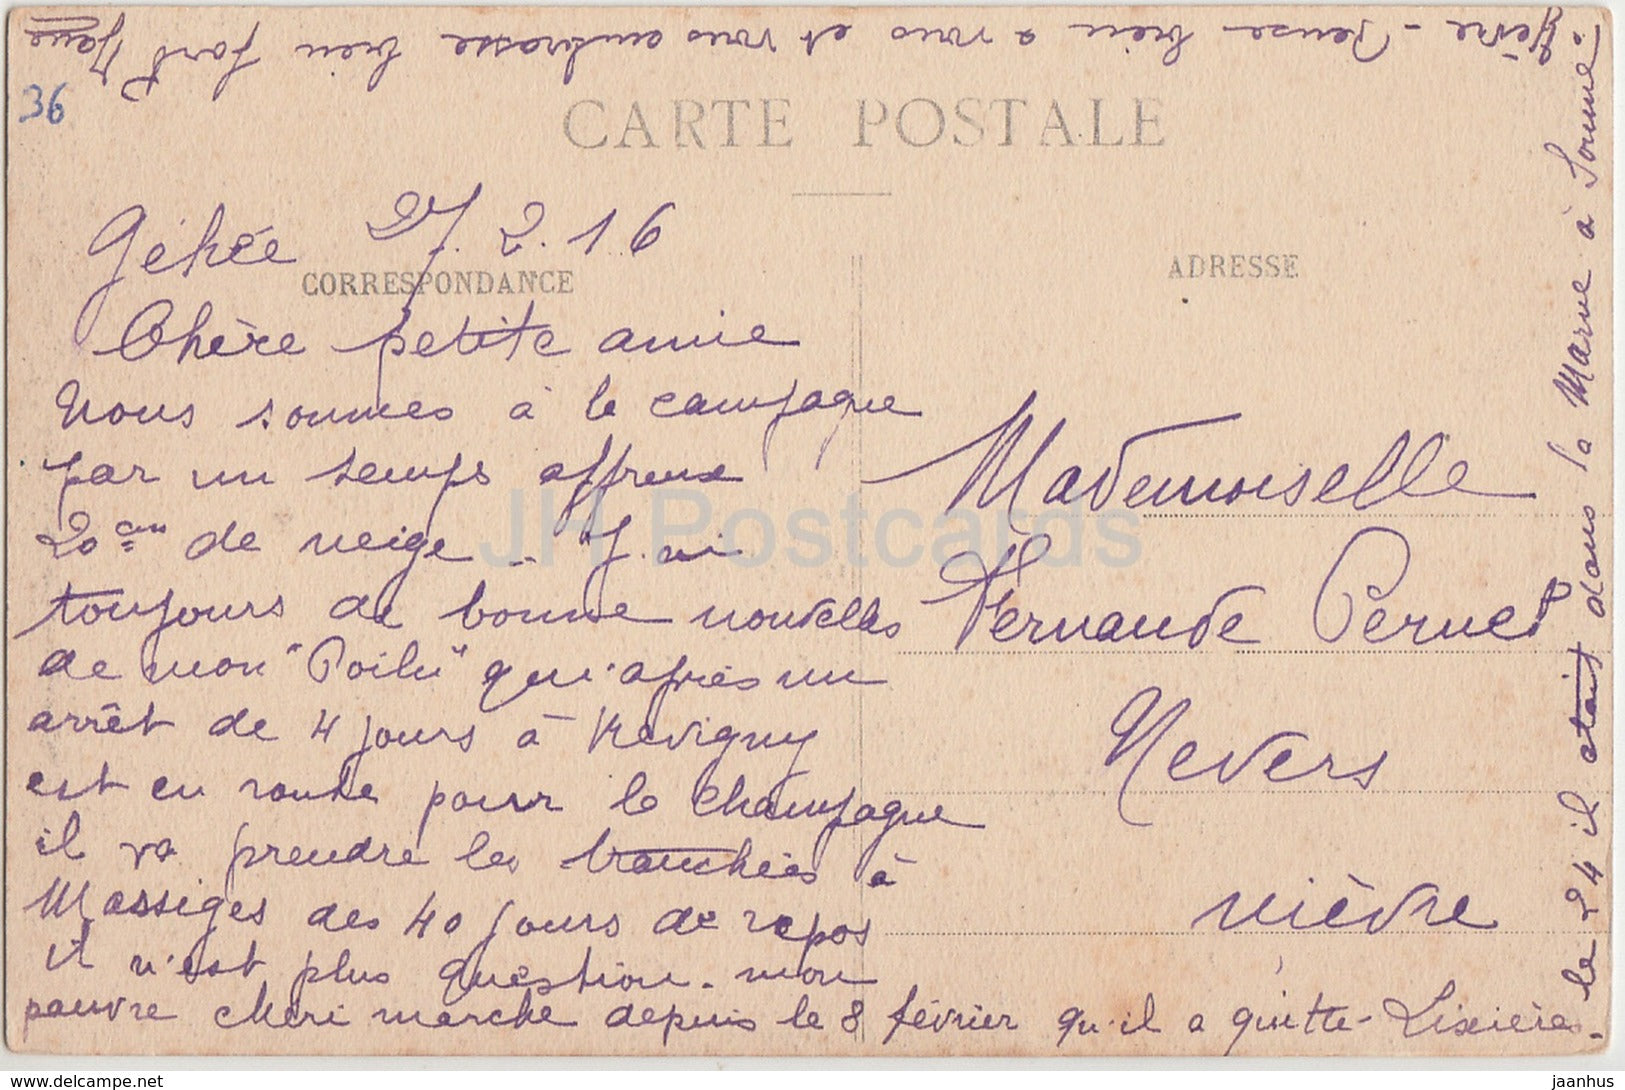 36
CARTE POSTALE
Gehée 27.2.16
CORRESPONDANCE
ADRESSE
Chère petite amie
Nous sommes à la campagne
par un temps affreux
20 cm de neige - J'ai
toujours de bonne nouvelles
de mon "Poilu" qui après un
arrêt de 4 jours à Revigny
est en route pour la Champagne
il va prendre les tranchées à
Massiges des 40 jours de repos
il n'est plus question. mon
pauvre Chéri marche depuis le 8 février qu'il a quitté Lixières.
le 24 il était dans la Marne à Somme
- Yèvre - Pense bien a vous et vous embrasse bien fort
Mademoiselle
Fernande Pernet
Nevers
Nièvre
JH Postcards
jaanhus / www.delcampe.net